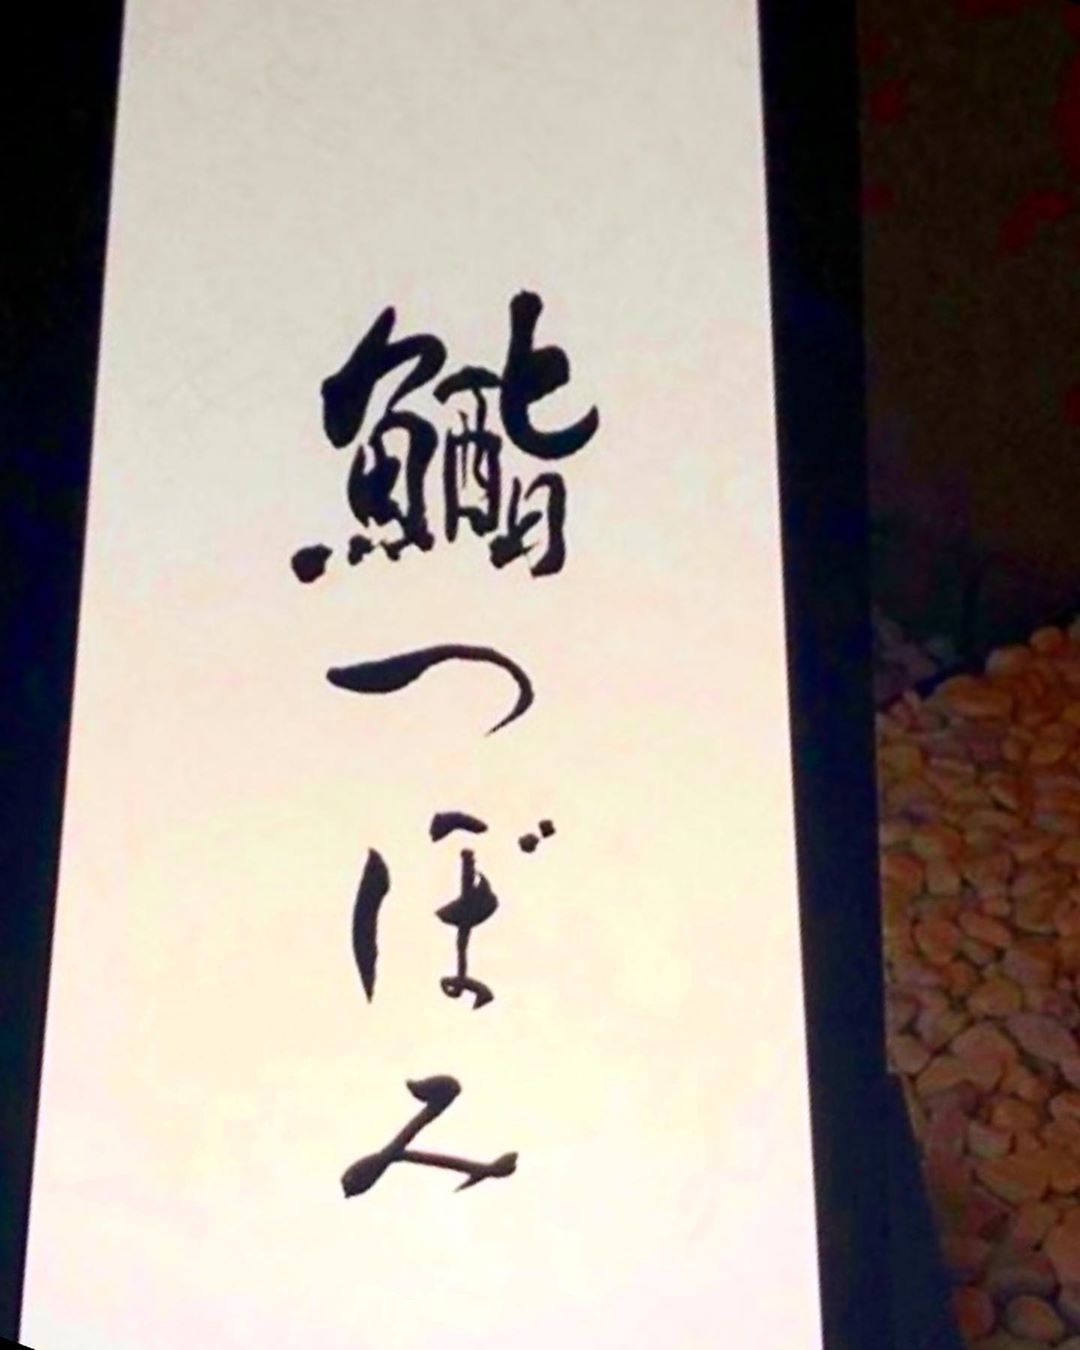 鮨つぼみ